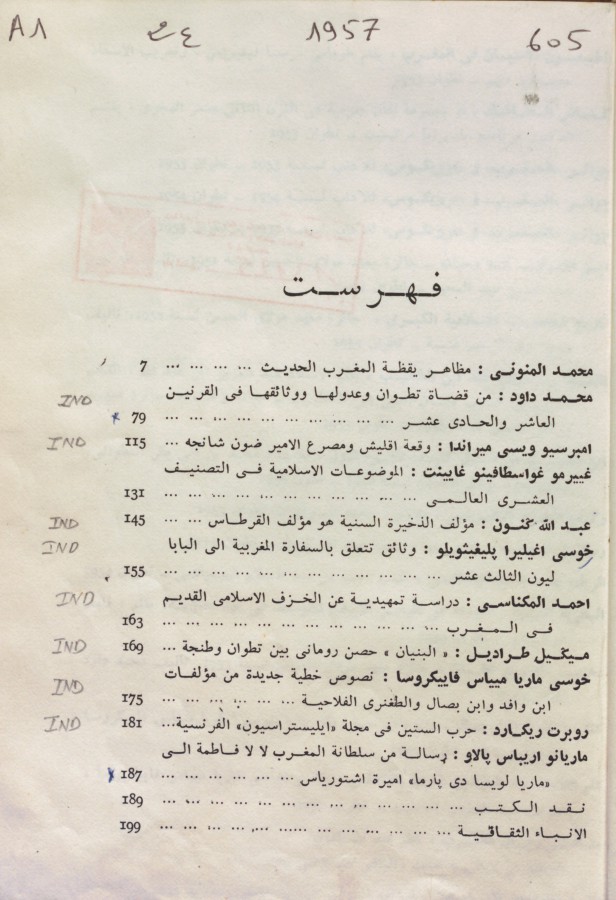 A1 1957 605
فهرست
محمد المنونى : مظاهر يقظة المغرب الحديث ... ... ... ... 7
محمد داود : من قضاة تطوان وعدولها ووثائقها فى القرنين
IND
العاشر والحادى عشر ... ... ... ... ... ... ... ... ... 79
امبرسيو ويسى ميراندا : وقعة اقليش ومصرع الامير ضون شانجه ... 115 IND
غييرمو غواسطافينو غايينت : الموضوعات الاسلامية فى التصنيف
العشرى العالمى ... ... ... ... ... ... ... ... ... 131
عبد الله كنون : مؤلف الذخيرة السنية هو مؤلف القرطاس ... ... 145 IND
خوسى اغيليرا پليغيثويلو : وثائق تتعلق بالسفارة المغربية الى البابا IND
ليون الثالث عشر ... ... ... ... ... ... ... ... ... 155
احمد المكناسى : دراسة تمهيدية عن الخزف الاسلامى القديم IND
فى المغرب ... ... ... ... ... ... ... ... ... ... 163
ميكيل طراديل : « البنيان » حصن رومانى بين تطوان وطنجة ... 169 IND
خوسى ماريا ميياس فاييكروسا : نصوص خطية جديدة من مؤلفات
IND
ابن وافد وابن بصال والطغنرى الفلاحية ... ... ... ... ... 175
روبرت ريكارد : حرب الستين فى مجلة «ايليستراسيون» الفرنسية... 181 IND
ماريانو اريباس پالاو : رسالة من سلطانة المغرب لا لا فاطمة الى
«ماريا لويسا دى پارما» اميرة اشتورياس ... ... ... ... ... ... 187
نقد الكتب ... ... ... ... ... ... ... ... ... ... ... 189
الانباء الثقافية ... ... ... ... ... ... ... ... ... ... 199